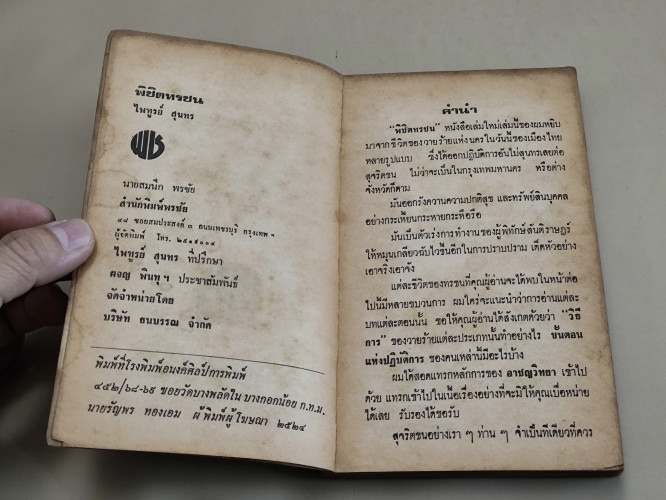 พิชิตทรชน
ไพฑูรย์ สุนทร
นายสมนึก พรชัย
สำนักพิมพ์พรชัย
๔๘ ซอยสมประสงค์ ๓ ถนนเพชรบุรี กรุงเทพ ฯ
ผู้จัดพิมพ์ โทร. ๒๕๑๕๐๐๔
ไพฑูรย์ สุนทร ที่ปรึกษา
ผจญ พินทุ ฯ ประชาสัมพันธ์
จัดจำหน่ายโดย
บริษัท ธนบรรณ จำกัด
พิมพ์ที่โรงพิมพ์อนงค์ศิลป์การพิมพ์
๔๕๒/๖๘-๖๙ ซอยวัดบางพลัดใน บางกอกน้อย ก.ท.ม.
นายรัญพร ทองเอม ผู้พิมพ์ผู้โฆษณา ๒๕๒๔
คำนำ
"พิชิตทรชน" หนังสือเล่มใหม่เล่มนี้ของผมหยิบ
มาจากชีวิตของวายร้ายแห่งนครในวันนี้ของเมืองไทย
หลายรูปแบบ ซึ่งได้ออกปฏิบัติการอันไม่สุนทรเสยต่อ
สุจริตชน ไม่ว่าจะเป็นในกรุงเทพมหานคร หรือต่าง
จังหวัดก็ตาม
มันออกรังควานความปกติสุข และทรัพย์สินบุคคล
อย่างกระเหี้ยนกระหายกระหือรือ
มันเป็นตัวเร่งการทำงานของผู้พิทักษ์สันติราษฎร์
ให้หมุนเกลียวฉับไวขึ้นอีกในการปราบปราม เด็ดหัวอย่าง
เอาจริงเอาจัง
แต่ละชีวิตของทรชนที่คุณผู้อ่านจะได้พบในหน้าต่อ
ไปนี้มีหลายขบวนการ ผมใคร่จะแนะนำว่าการอ่านแต่ละ
บทแต่ละตอนนั้น ขอให้คุณผู้อ่านได้สังเกตด้วยว่า "วิธี
การ" ของวายร้ายแต่ละประเภทนั้นทำอย่างไร ขั้นตอน
แห่งปฏิบัติการ ของคนเหล่านี้มีอะไรบ้าง
ผมได้สอดแทรกหลักการของ อาชญวิทยา เข้าไป
ด้วย แทรกเข้าไปในเนื้อเรื่องอย่างที่จะมิให้คุณเบื่อหน่าย
ได้เลย รับรองได้ขอรับ
สุจริตชนอย่างเรา ๆ ท่าน ๆ จำเป็นทีเดียวที่ควร